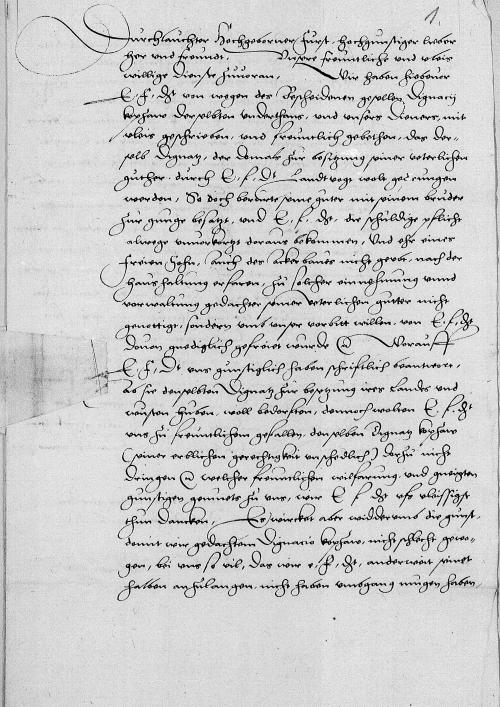 1.
Durchlauchter Hochgeborner Furst, hochgunstiger lieber
her und freundt. Unsere freuntliche und vleis
willige dienste zuuoran, Wir haben hiebeuor
E. f. dt von wegen des Bescheidenen gesellen Dignatij
derselbten underthans, und unsers dieners, mit
vleis geschrieben, und freuntlich gebethen, das der-
selb Dignatz, der domals zur besitzung seiner veterlichen
guther, durch E. f. dt Landtvogt wolt gedrungen
werden, So doch berurte seine guter mit seinem bruder
zur gnuge besatzt, und E. f. dt. die schuldige pflicht
alwege unuorkurtzt doraus bekommen, Und ehr eines
freien Sohn, auch des Ackerbaues nicht geubt, nach der
haushaltung erfaren, zu solcher einnehmung unnd
vorwaltung gedachter seiner veterlichen gutter nicht
genottiget, sondern umb unser vorbitt willen, von E. f. dt
douon gnediglich gefreiet wurde Worauff
E. f. dt uns gunstiglich haben schriftlich beantwort,
ob sie denselbten Dignatz zur besetzung ires Landes und
wusten huben, woll bedorften, dennoch wolten E. f. dt
uns zu freuntlichem gefallen, denselben Dignatz
(seiner erblichen gerechtigkeit unschedlich) dozu nicht
dringen welcher freuntlichen wilfarung, und geneigten
gunstigen gemuete zu uns, wir E f dt ufs vleissigst
thun dancken, Es wircket aber widderumb die gunst,
domit wir gedachtem Dignacio nicht schlecht gewo-
gen, bei uns so vil, das wir e. f. dt, anderweit seinet
halben anzulangen, nicht haben umbgang mugen haben,